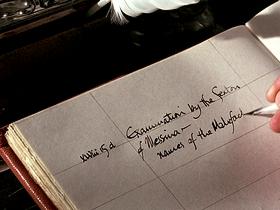 Examination by the Sexton
of Messina -
names of the Malefact